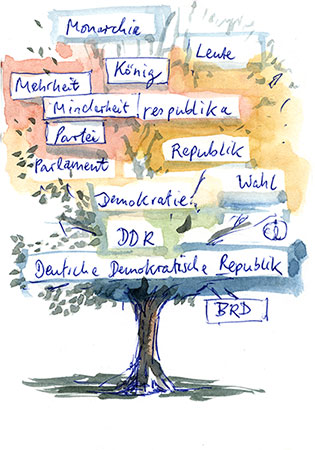 Monarchie
Leute
König
Mehrheit
Minderheit respublika
Partei
Republik
Parlament
Wahl
Demokratie
DDR
Deutsche Demokratische Republik
BRD